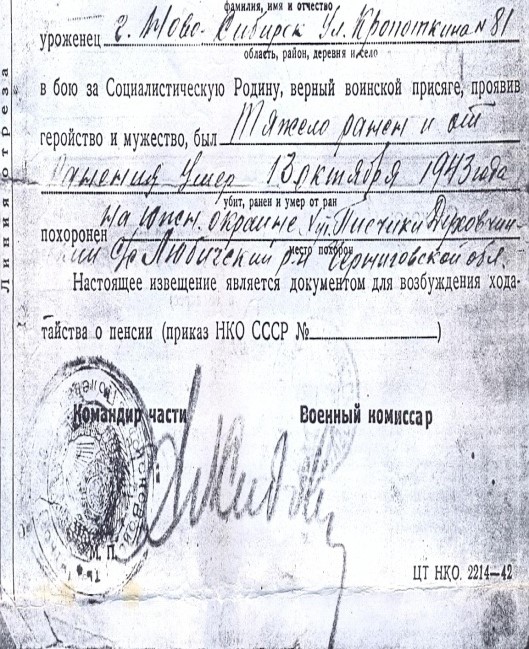 фамилия, имя и отчество
уроженец г. Ново-Сибирск Ул. Кропоткина № 81
область, район, деревня и село
в бою за Социалистическую Родину, верный воинской присяге, проявив
геройство и мужество, был Тяжело ранен и от
ранения Умер 13 октября 1943 года
убит, ранен и умер от ран
похоронен на Южн. окраине хут.
место похорон
Любичский р-н Черниговской обл.
Настоящее извещение является документом для возбуждения хода-
тайства о пенсии (приказ НКО СССР №)
Командир части Военный комиссар
М. П.
ЦТ НКО. 2214—42
Линия отреза